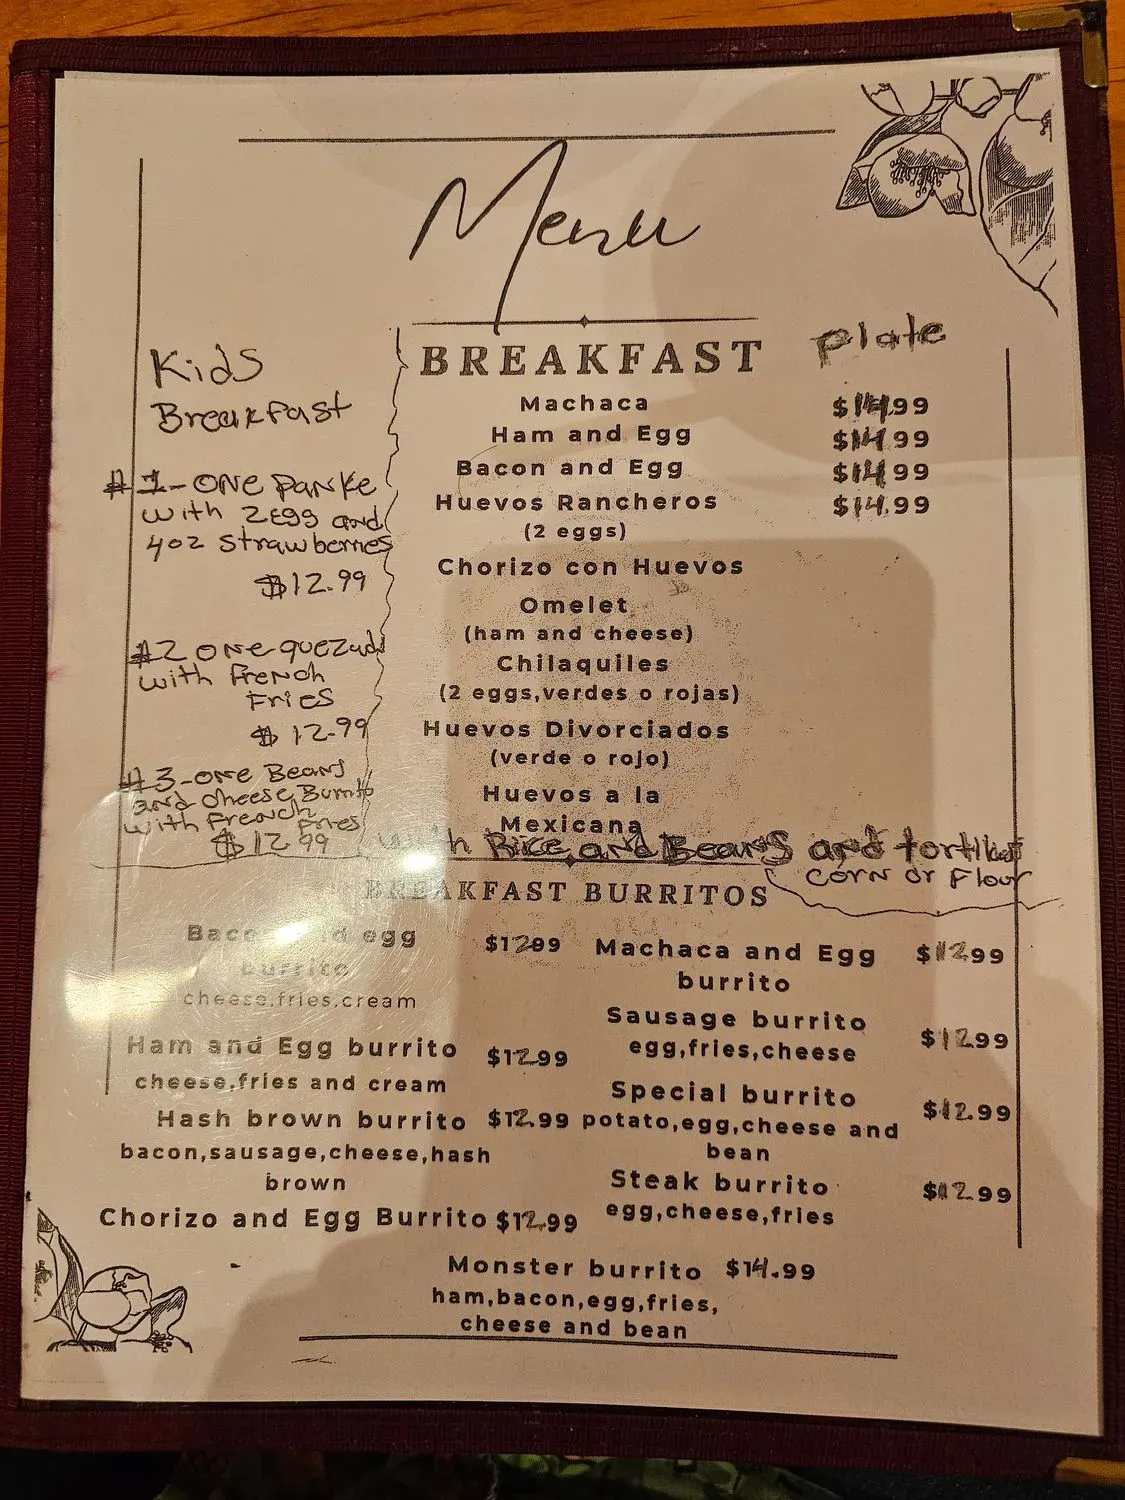 Menu
Kids
Breakfast
#1-one panke
with 2 Egg and
4oz strawberries
$12.99
#2 one quezadi
with french
Fries
$12.99
#3-one Beans
and cheese Burrito
with french
fries
$12.99
BREAKFAST plate
Machaca $14.99
Ham and Egg $14.99
Bacon and Egg $14.99
Huevos Rancheros $14.99
(2 eggs)
Chorizo con Huevos
Omelet
(ham and cheese)
Chilaquiles
(2 eggs,verdes o rojas)
Huevos Divorciados
(verde o rojo)
Huevos a la
Mexicana
with Rice and Beans and tortillas
corn or Flour
BREAKFAST BURRITOS
Bacon and egg $12.99
burrito
cheese,fries,cream
Ham and Egg burrito $12.99
cheese,fries and cream
Hash brown burrito $12.99
bacon,sausage,cheese,hash
brown
Chorizo and Egg Burrito $12.99
Machaca and Egg $12.99
burrito
Sausage burrito $12.99
egg,fries,cheese
Special burrito $12.99
potato,egg,cheese and
bean
Steak burrito $12.99
egg,cheese,fries
Monster burrito $14.99
ham,bacon,egg,fries,
cheese and bean